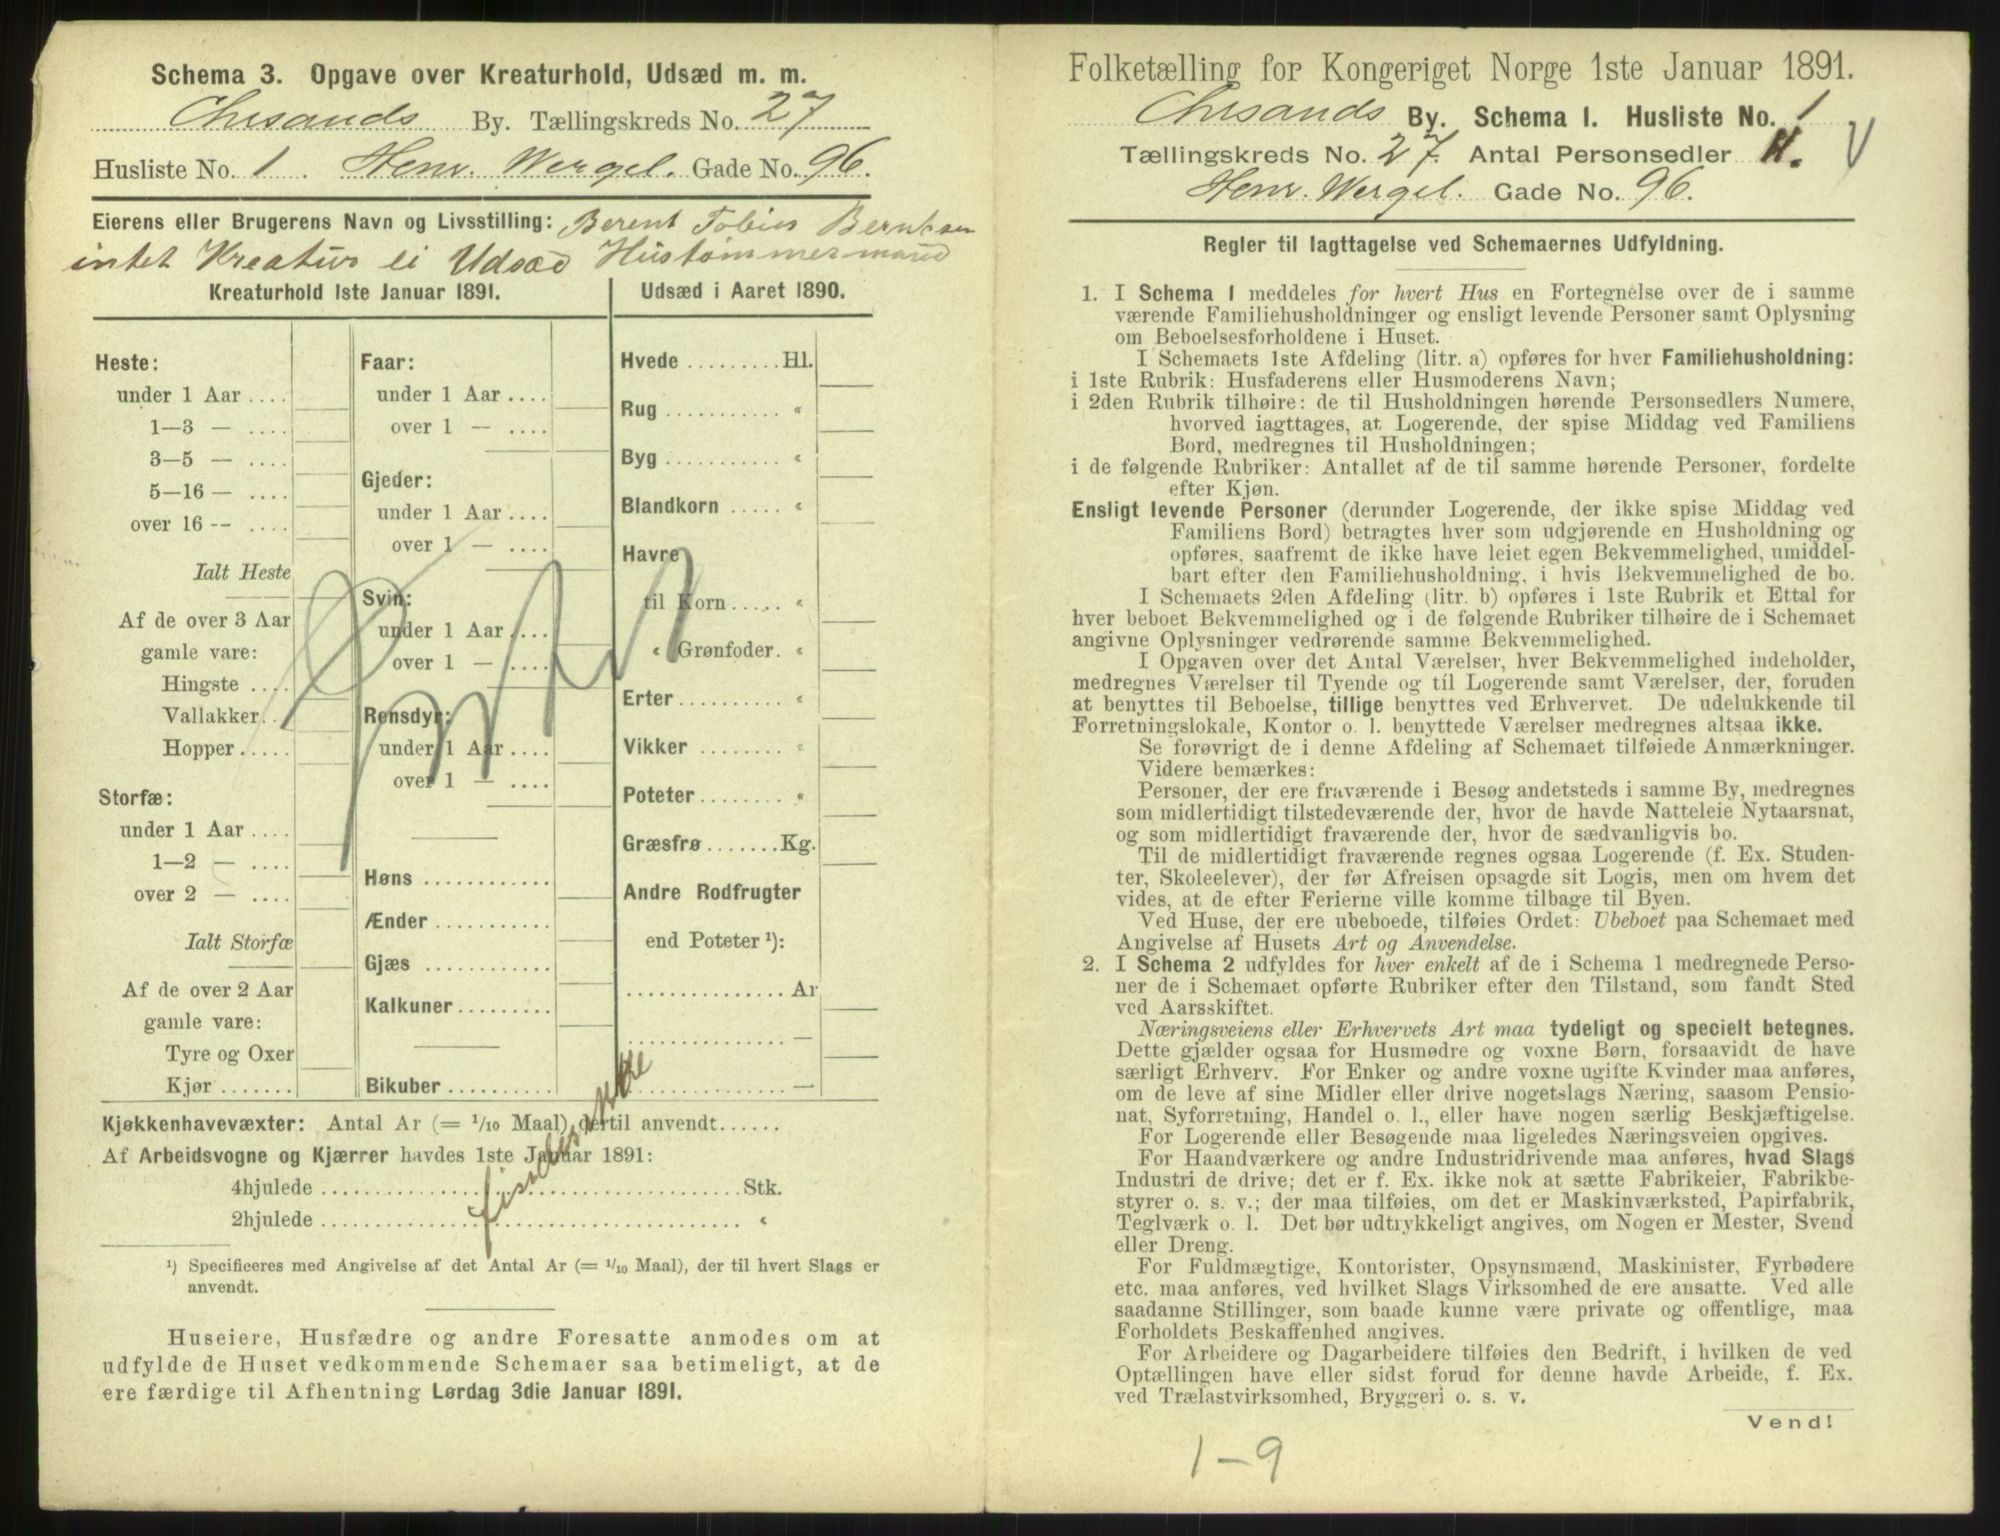 Schema 3. Opgave over Kreaturhold, Udsæd m. m.
Chrsands By. Tællingskreds No. 27
Husliste No. 1. Henr. Wergel. Gade No. 96.
Eierens eller Brugerens Navn og Livsstilling: Berent Tobias Berntsen
intet Kreatur ei Udsæd Hustømmermand
Kreaturhold 1ste Januar 1891.
Heste:
under 1 Aar ....
1—3 — ....
3—5 — ....
5—16 — ....
over 16 -- ....
Ialt Heste
Af de over 3 Aar
gamle vare:
Hingste ....
Vallakker..
Hopper .....
Storfæ:
under 1 Aar ....
1—2 — ....
over 2 — ....
Ialt Storfæ
Af de over 2 Aar
gamle vare:
Tyre og Oxer
Kjør .......
Faar:
under 1 Aar ....
over 1 — ....
Gjeder:
under 1 Aar ....
over 1 — ....
Svin:
under 1 Aar ....
over 1 — ....
Rensdyr:
under 1 Aar ....
over 1 — ....
Høns ............
Ænder ...........
Gjæs ............
Kalkuner .........
Bikuber ..........
Udsæd i Aaret 1890.
Hvede ......... Hl.
Rug ........... «
Byg ........... «
Blandkorn ..... «
Havre
til Korn ..... «
« Grønfoder. «
Erter .......... «
Vikker ........ «
Poteter ........ «
Græsfrø ....... Kg.
Andre Rodfrugter
end Poteter ¹):
............... Ar
............... —
............... —
Kjøkkenhavevæxter: Antal Ar (= 1/10 Maal) dertil anvendt ......
Af Arbeidsvogne og Kjærrer havdes 1ste Januar 1891:
4hjulede ........................................ Stk.
2hjulede ........................................ «
findes ikke
¹) Specificeres med Angivelse af det Antal Ar (= 1/10 Maal), der til hvert Slags er
anvendt.
Huseiere, Husfædre og andre Foresatte anmodes om at
udfylde de Huset vedkommende Schemaer saa betimeligt, at de
ere færdige til Afhentning Lørdag 3die Januar 1891.
Folketælling for Kongeriget Norge 1ste Januar 1891.
Chrsands By. Schema I. Husliste No. 1
Tællingskreds No. 27. Antal Personsedler
Henr. Wergel. Gade No. 96.
Regler til Iagttagelse ved Schemaernes Udfyldning.
1. I Schema I meddeles for hvert Hus en Fortegnelse over de i samme
værende Familiehusholdninger og ensligt levende Personer samt Oplysning
om Beboelsesforholdene i Huset.
I Schemaets 1ste Afdeling (litr. a) opføres for hver Familiehusholdning:
i 1ste Rubrik: Husfaderens eller Husmoderens Navn;
i 2den Rubrik tilhøire: de til Husholdningen hørende Personsedlers Numere,
hvorved iagttages, at Logerende, der spise Middag ved Familiens
Bord, medregnes til Husholdningen;
i de følgende Rubriker: Antallet af de til samme hørende Personer, fordelte
efter Kjøn.
Ensligt levende Personer (derunder Logerende, der ikke spise Middag ved
Familiens Bord) betragtes hver som udgjørende en Husholdning og
opføres, saafremt de ikke have leiet egen Bekvemmelighed, umiddel-
bart efter den Familiehusholdning, i hvis Bekvemmelighed de bo.
I Schemaets 2den Afdeling (litr. b) opføres i 1ste Rubrik et Ettal for
hver beboet Bekvemmelighed og i de følgende Rubriker tilhøire de i Schemaet
angivne Oplysninger vedrørende samme Bekvemmelighed.
I Opgaven over det Antal Værelser, hver Bekvemmelighed indeholder,
medregnes Værelser til Tyende og til Logerende samt Værelser, der, foruden
at benyttes til Beboelse, tillige benyttes ved Erhvervet. De udelukkende til
Forretningslokale, Kontor o. l. benyttede Værelser medregnes altsaa ikke.
Se forøvrigt de i denne Afdeling af Schemaet tilføiede Anmærkninger.
Videre bemærkes:
Personer, der ere fraværende i Besøg andetsteds i samme By, medregnes
som midlertidigt tilstedeværende der, hvor de havde Natteleie Nytaarsnat,
og som midlertidigt fraværende der, hvor de sædvanligvis bo.
Til de midlertidigt fraværende regnes ogsaa Logerende (f. Ex. Studen-
ter, Skoleelever), der før Afreisen opsagde sit Logis, men om hvem det
vides, at de efter Ferierne ville komme tilbage til Byen.
Ved Huse, der ere ubeboede, tilføies Ordet: Ubeboet paa Schemaet med
Angivelse af Husets Art og Anvendelse.
2. I Schema 2 udfyldes for hver enkelt af de i Schema 1 medregnede Perso-
ner de i Schemaet opførte Rubriker efter den Tilstand, som fandt Sted
ved Aarsskiftet.
Næringsveiens eller Erhvervets Art maa tydeligt og specielt betegnes.
Dette gjælder ogsaa for Husmødre og voxne Børn, forsaavidt de have
særligt Erhverv. For Enker og andre voxne ugifte Kvinder maa anføres,
om de leve af sine Midler eller drive nogetslags Næring, saasom Pensio-
nat, Syforretning, Handel o. l., eller have nogen særlig Beskjæftigelse.
For Logerende eller Besøgende maa ligeledes Næringsveien opgives.
For Haandværkere og andre Industridrivende maa anføres, hvad Slags
Industri de drive; det er f. Ex. ikke nok at sætte Fabrikeier, Fabrikbe-
styrer o. s. v.; der maa tilføies, om det er Maskinværksted, Papirfabrik,
Teglværk o. l. Det bør udtrykkeligt angives, om Nogen er Mester, Svend
eller Dreng.
For Fuldmægtige, Kontorister, Opsynsmænd, Maskinister, Fyrbødere
etc. maa anføres, ved hvilket Slags Virksomhed de ere ansatte. Ved alle
saadanne Stillinger, som baade kunne være private og offentlige, maa
Forholdets Beskaffenhed angives.
For Arbeidere og Dagarbeidere tilføies den Bedrift, i hvilken de ved
Optællingen have eller sidst forud for denne havde Arbeide, f. Ex.
ved Trælastvirksomhed, Bryggeri o. s. v.
Vend!
1-9